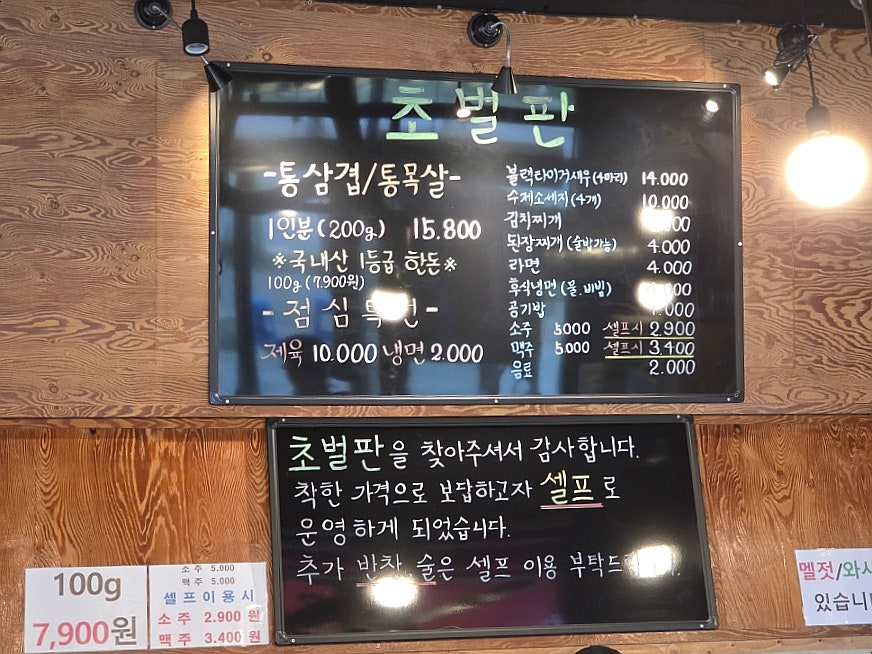 초벌판
-통삼겹/통목살-
1인분(200g) 15.800
※국내산 1등급 한돈※
100g(7,900원)
-점심특선-
제육 10.000 냉면 2.000
블랙타이거새우(4마리) 14.000
수제소세지(4개) 10.000
김치찌개
된장찌개(술밥가능) 4.000
라면 4.000
후식냉면(물.비빔)
공기밥
소주 5000 셀프시 2.900
맥주 5.000 셀프시 3.400
음료 2.000
초벌판을 찾아주셔서 감사합니다.
착한 가격으로 보답하고자 셀프로
운영하게 되었습니다.
추가 반찬,술은 셀프 이용
100g
7,900원
소주 5.000
맥주 5.000
셀프이용시
소주 2.900 원
맥주 3.400 원
멜젓/와사
있습니